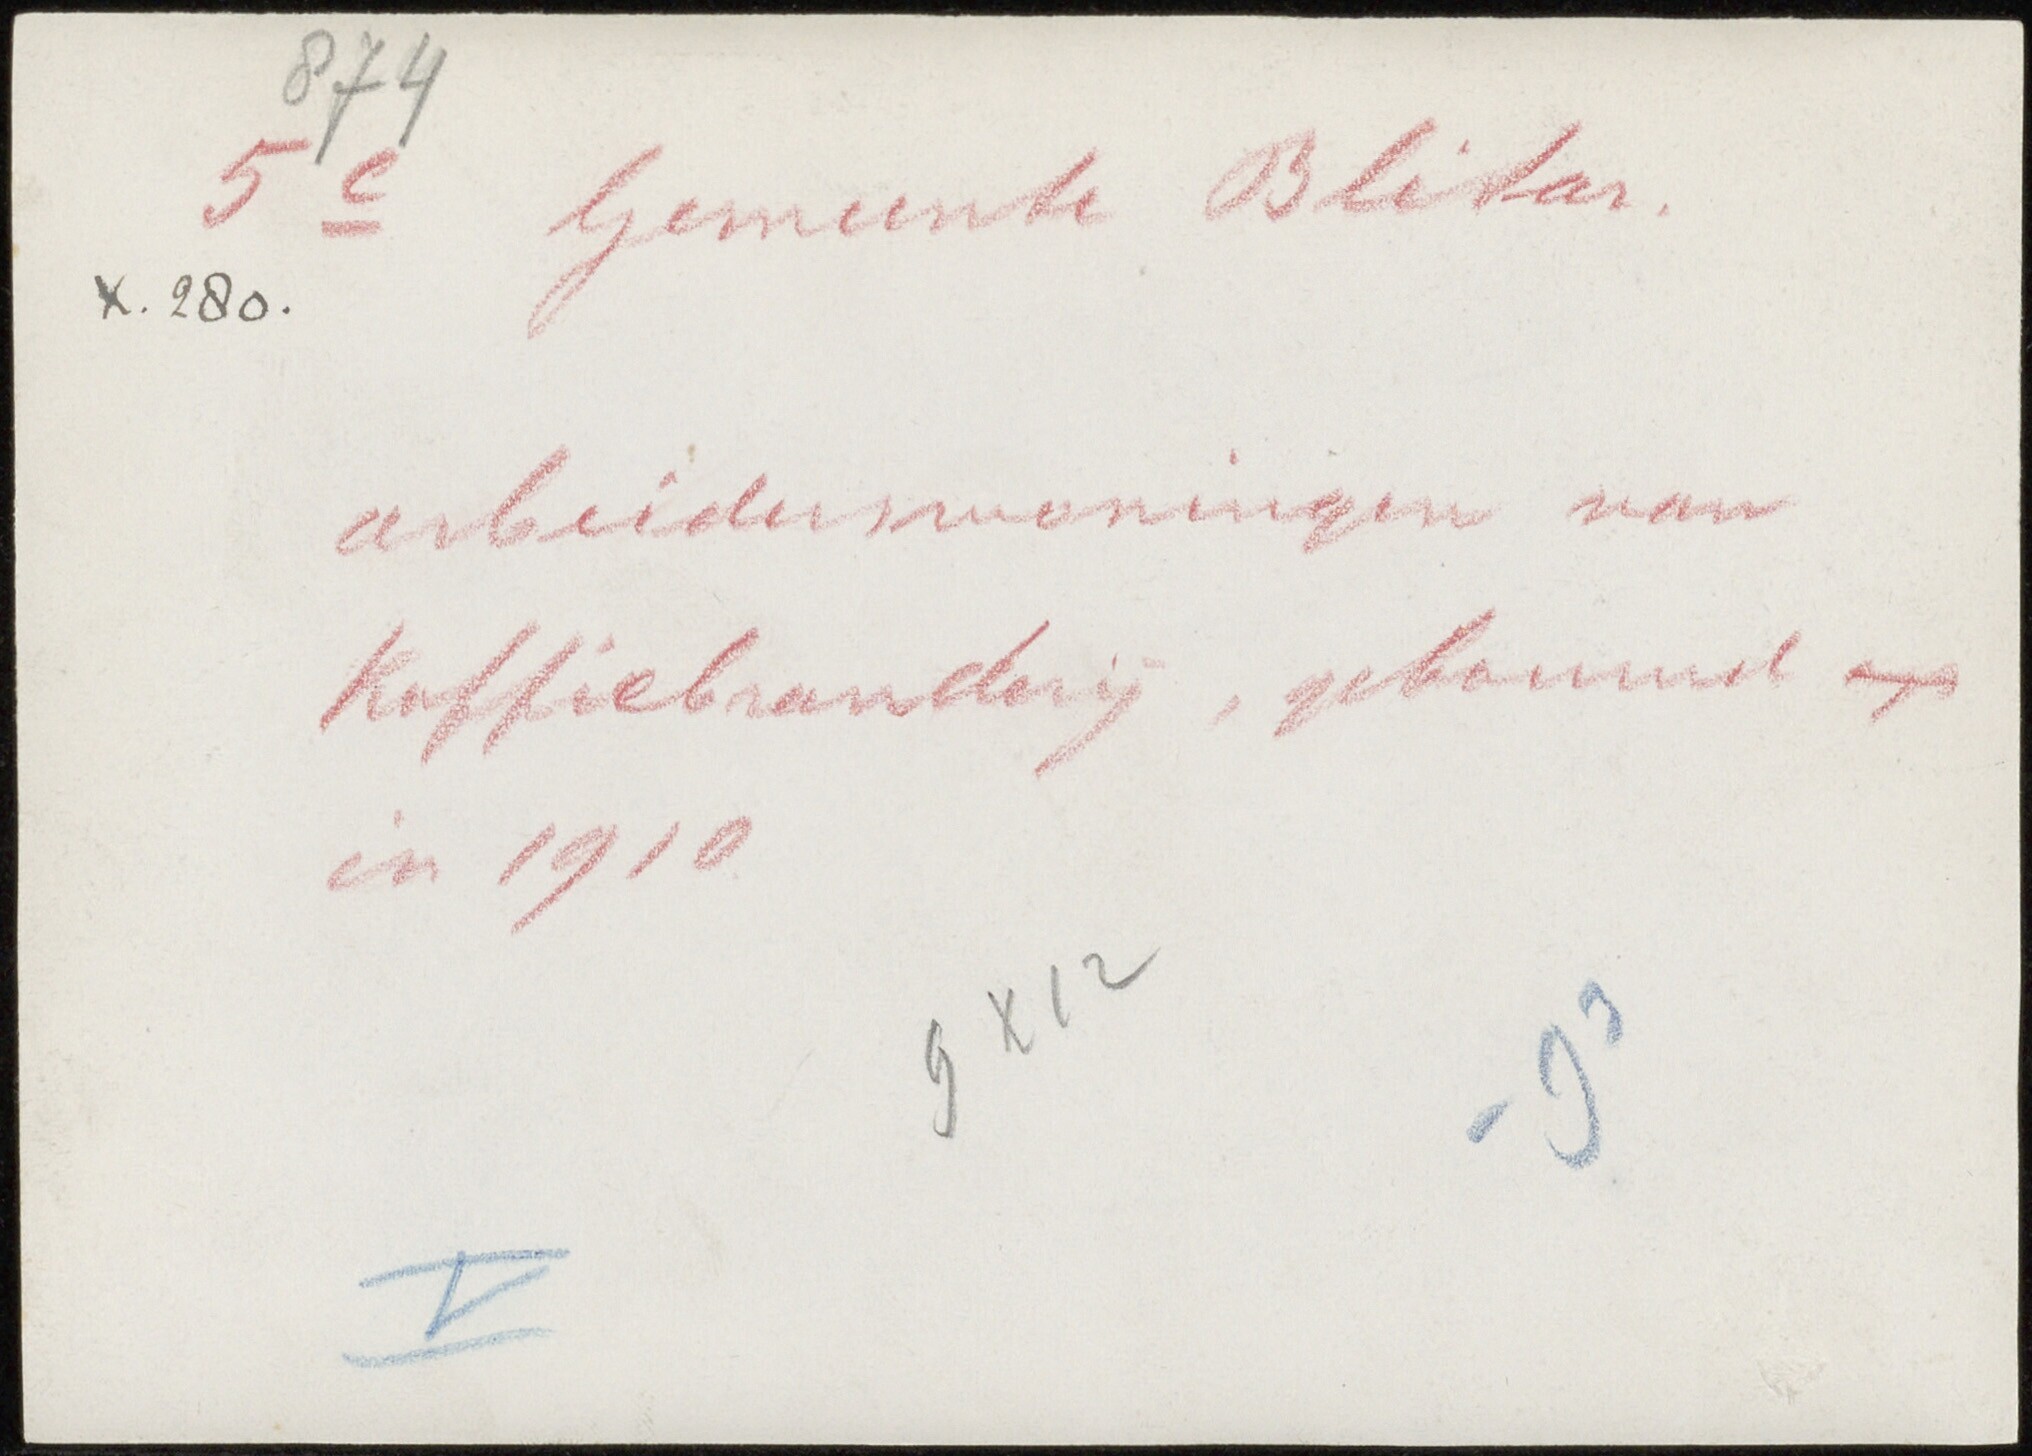 874
5e Gemeente Blitar.
X. 280.
arbeiderswoningen van
Koffiebranderij, gebouwd
in 1910
9 x 12
V